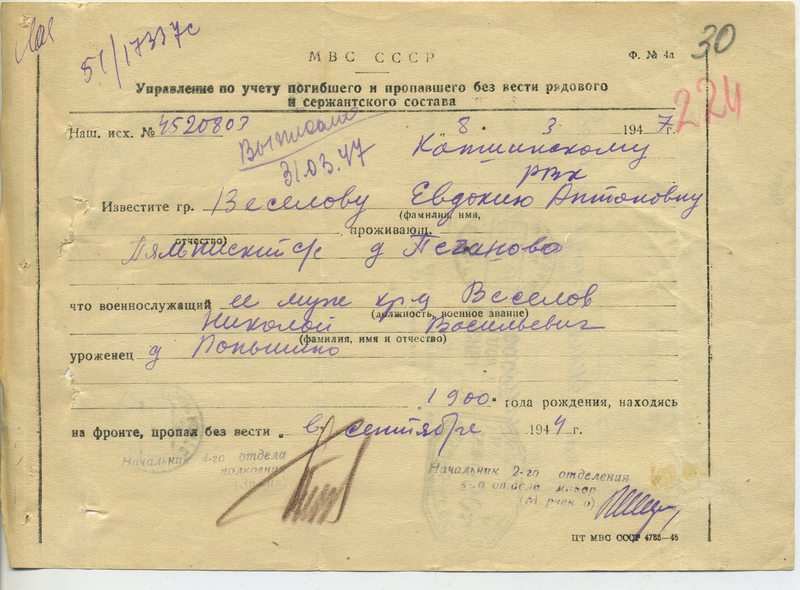 51/17337с
30
МВС СССР
Ф. № 4а
Управление по учету погибшего и пропавшего без вести рядового
и сержантского состава
224
Наш. исх. № 4520803
8. 3 1947 г.
Выписано
31.03.47
Капшинскому
РВК
Известите гр. Веселову Евдокию Антоновну
(фамилия, имя,
отчество)
проживающ.
с/с д Пеганово
что военнослужащий ее муж кр-ц Веселов
(должность, военное звание)
Николай Васильевич
(фамилия, имя и отчество)
уроженец д
1900 года рождения, находясь
на фронте, пропал без вести в сентябре 1944 г.
Начальник 4-го отдела
полковник
Начальник 2-го отделения
4-го отдела майор
ЦТ МВС СССР 4785—46